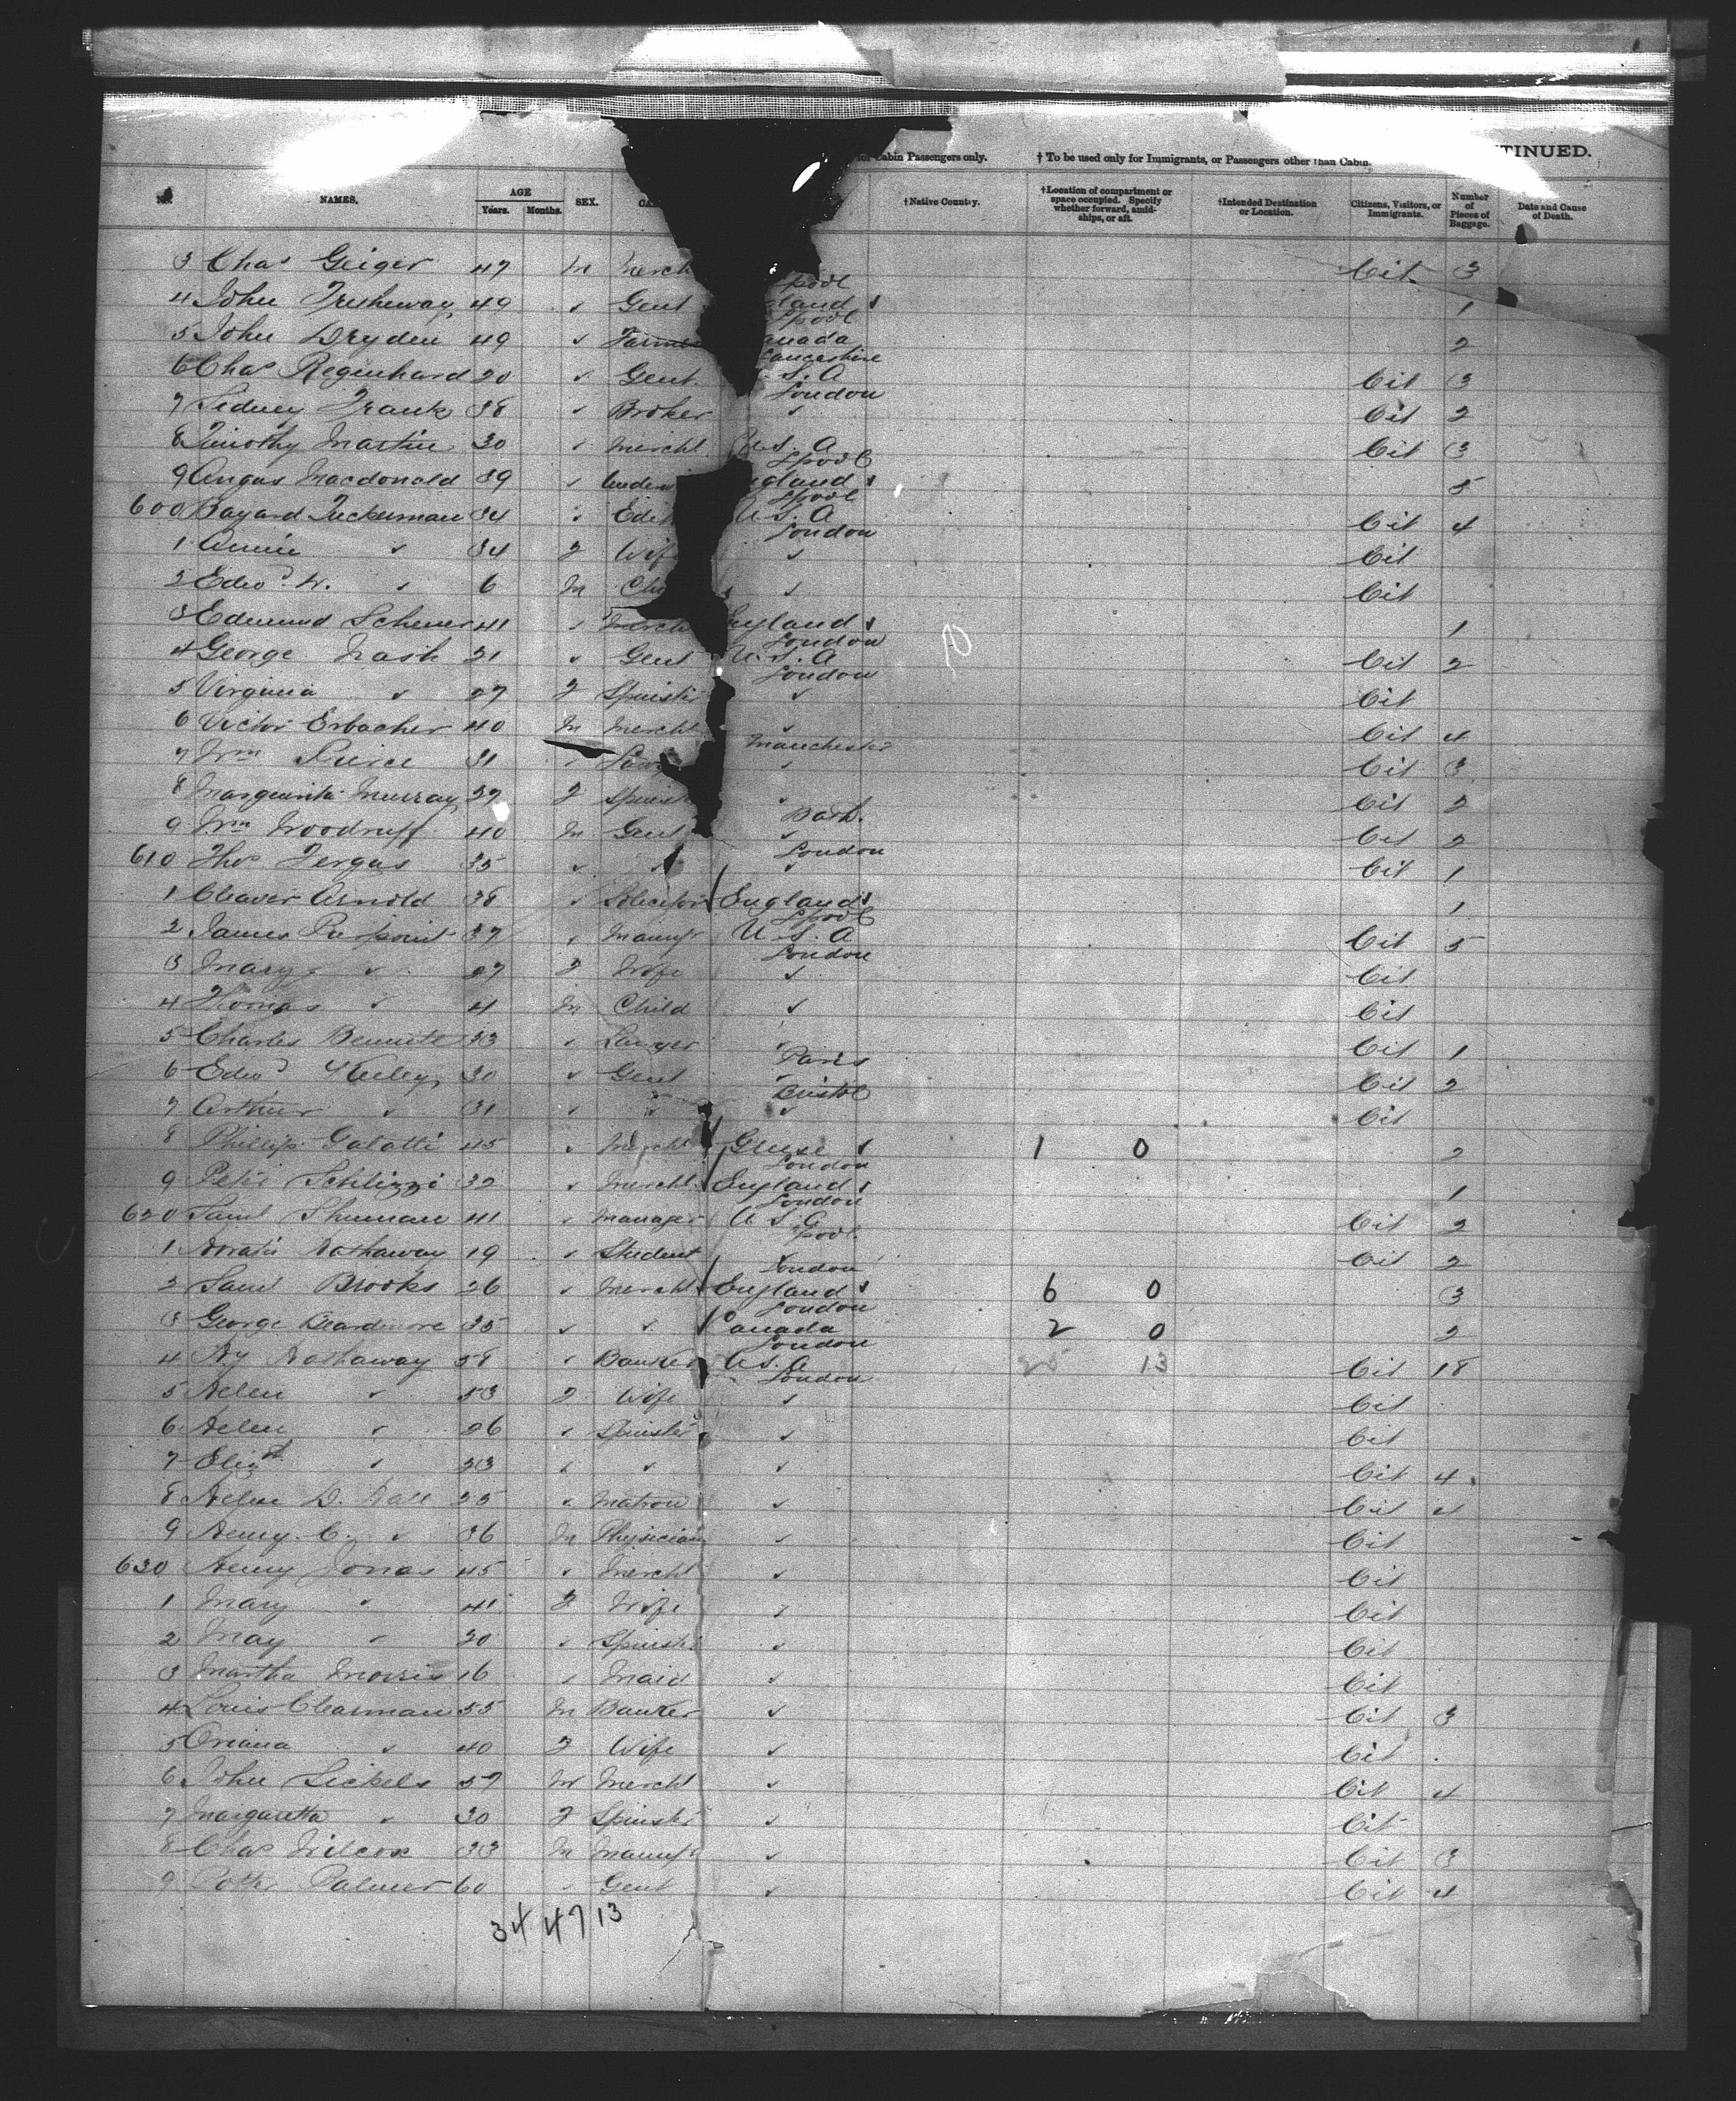 for Cabin Passengers only. † To be used only for Immigrants, or Passengers other than Cabin. TINUED.
NAMES. AGE Years. Months. SEX. †Native Country. †Location of compartment or space occupied. Specify whether forward, amidships, or aft. †Intended Destination or Location. Citizens, Visitors, or Immigrants. Number of Pieces of Baggage. Date and Cause of Death.
3 Chas Geiger 47 M Merch Cit 3
4 John 49 " Gent 1
5 John Dryden 49 " Farmer anada 2
6 Chas Regenhard 20 " Gent S. A Cit 3
London
7 Sidney Frank 38 " Broker " Cit 2
8 Timothy Martin 30 " Mercht U.S. A Cit 3
Lpool
9 Angus Macdonald 39 " ngland 5
Lpool
600 Bayard Tuckerman 34 " Edit U.S. A Cit 4
London
1 Annie " 34 F Wife " Cit
2 Edwd W. " 6 M Chi " Cit
3 Edmund Scheuer 41 " Merch England 1
London
4 George Nash 21 " Gent U.S. A Cit 2
London
5 Virginia " 27 F Spinster " Cit
6 Victor Erbacher 40 M Mercht " Cit 4
Manchester
7 Wm Pierce 31 " Law " Cit 3
8 Murray 27 F Spinst " Cit 2
Bath.
9 Wm Woodruff 40 M Gent " Cit 2
London
610 Thos Fergus 35 " " " Cit 1
1 Cleaver Arnold 38 " Solicitor England 1
Lpool
2 James Pierpoint 37 " Manufr U S. A Cit 5
London
3 Mary " 27 F Wife " Cit
4 Thomas " 4 M Child " Cit
5 Charles 33 " Lawyer " Cit 1
Paris
6 Edwd Keiley 30 " Gent " Cit 2
Bristol
7 Arthur " 31 " " " Cit
8 Phillip Galatti 45 " Mercht 1 0 2
London
9 Peter Schlizzi 32 " Mercht England 1
London
620 Saml Shuman 41 " Manager U.S.A Cit 2
1 Horatio Hathaway 19 " Student " Cit 2
London
2 Saml Brooks 26 " Mercht England 6 0 3
London
3 George Beardmore 35 " " Canada 2 0 2
London
4 Hy Hathaway 58 " Banker U.S. A 25 13 Cit 18
London
5 Helen " 53 F Wife " Cit
6 Helen " 26 " Spinster " Cit
7 Elizth " 23 " " " Cit 4
8 Helen D. Hall 25 " Matron " Cit 4
9 Henry C. " 36 M Physician " Cit
630 Henry Jonas 45 " Mercht " Cit
1 Mary " 41 F Wife " Cit
2 May " 20 " Spinster " Cit
3 Martha Morris 16 " Maid " Cit
4 Louis Clearman 55 M Banker " Cit 3
5 Oriana " 40 F Wife " Cit
6 John Sickels 57 M Mercht " Cit 4
7 Margaretta " 30 F Spinster " Cit
8 Chas Wilcox 33 M Manufr " Cit 3
9 Potter Palmer 60 " Gent " Cit 4
34 47 13